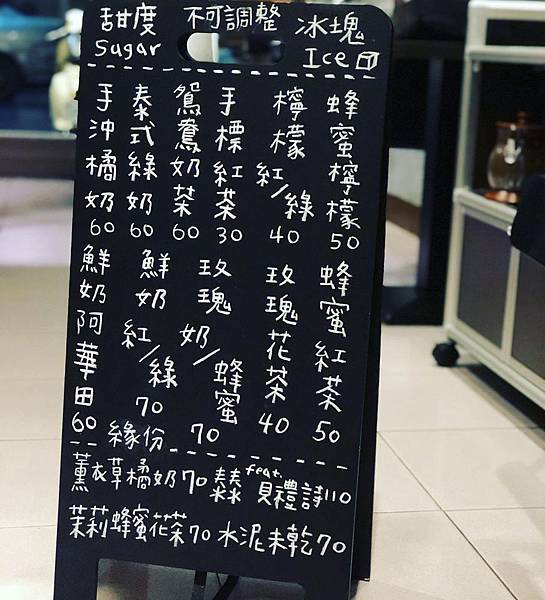 甜度 不可調整 冰塊
Sugar Ice
手沖橘奶 60
泰式綠奶 60
鴛鴦奶茶 60
手標紅茶 30
檸檬紅/綠 40
蜂蜜檸檬 50
鮮奶阿華田 60
鮮奶紅/綠 70
玫瑰奶/蜂蜜 70
玫瑰花茶 40
蜂蜜紅茶 50
緣份
薰衣草橘奶70 feat. 貝禮詩110
茉莉蜂蜜花茶70 水泥未乾70